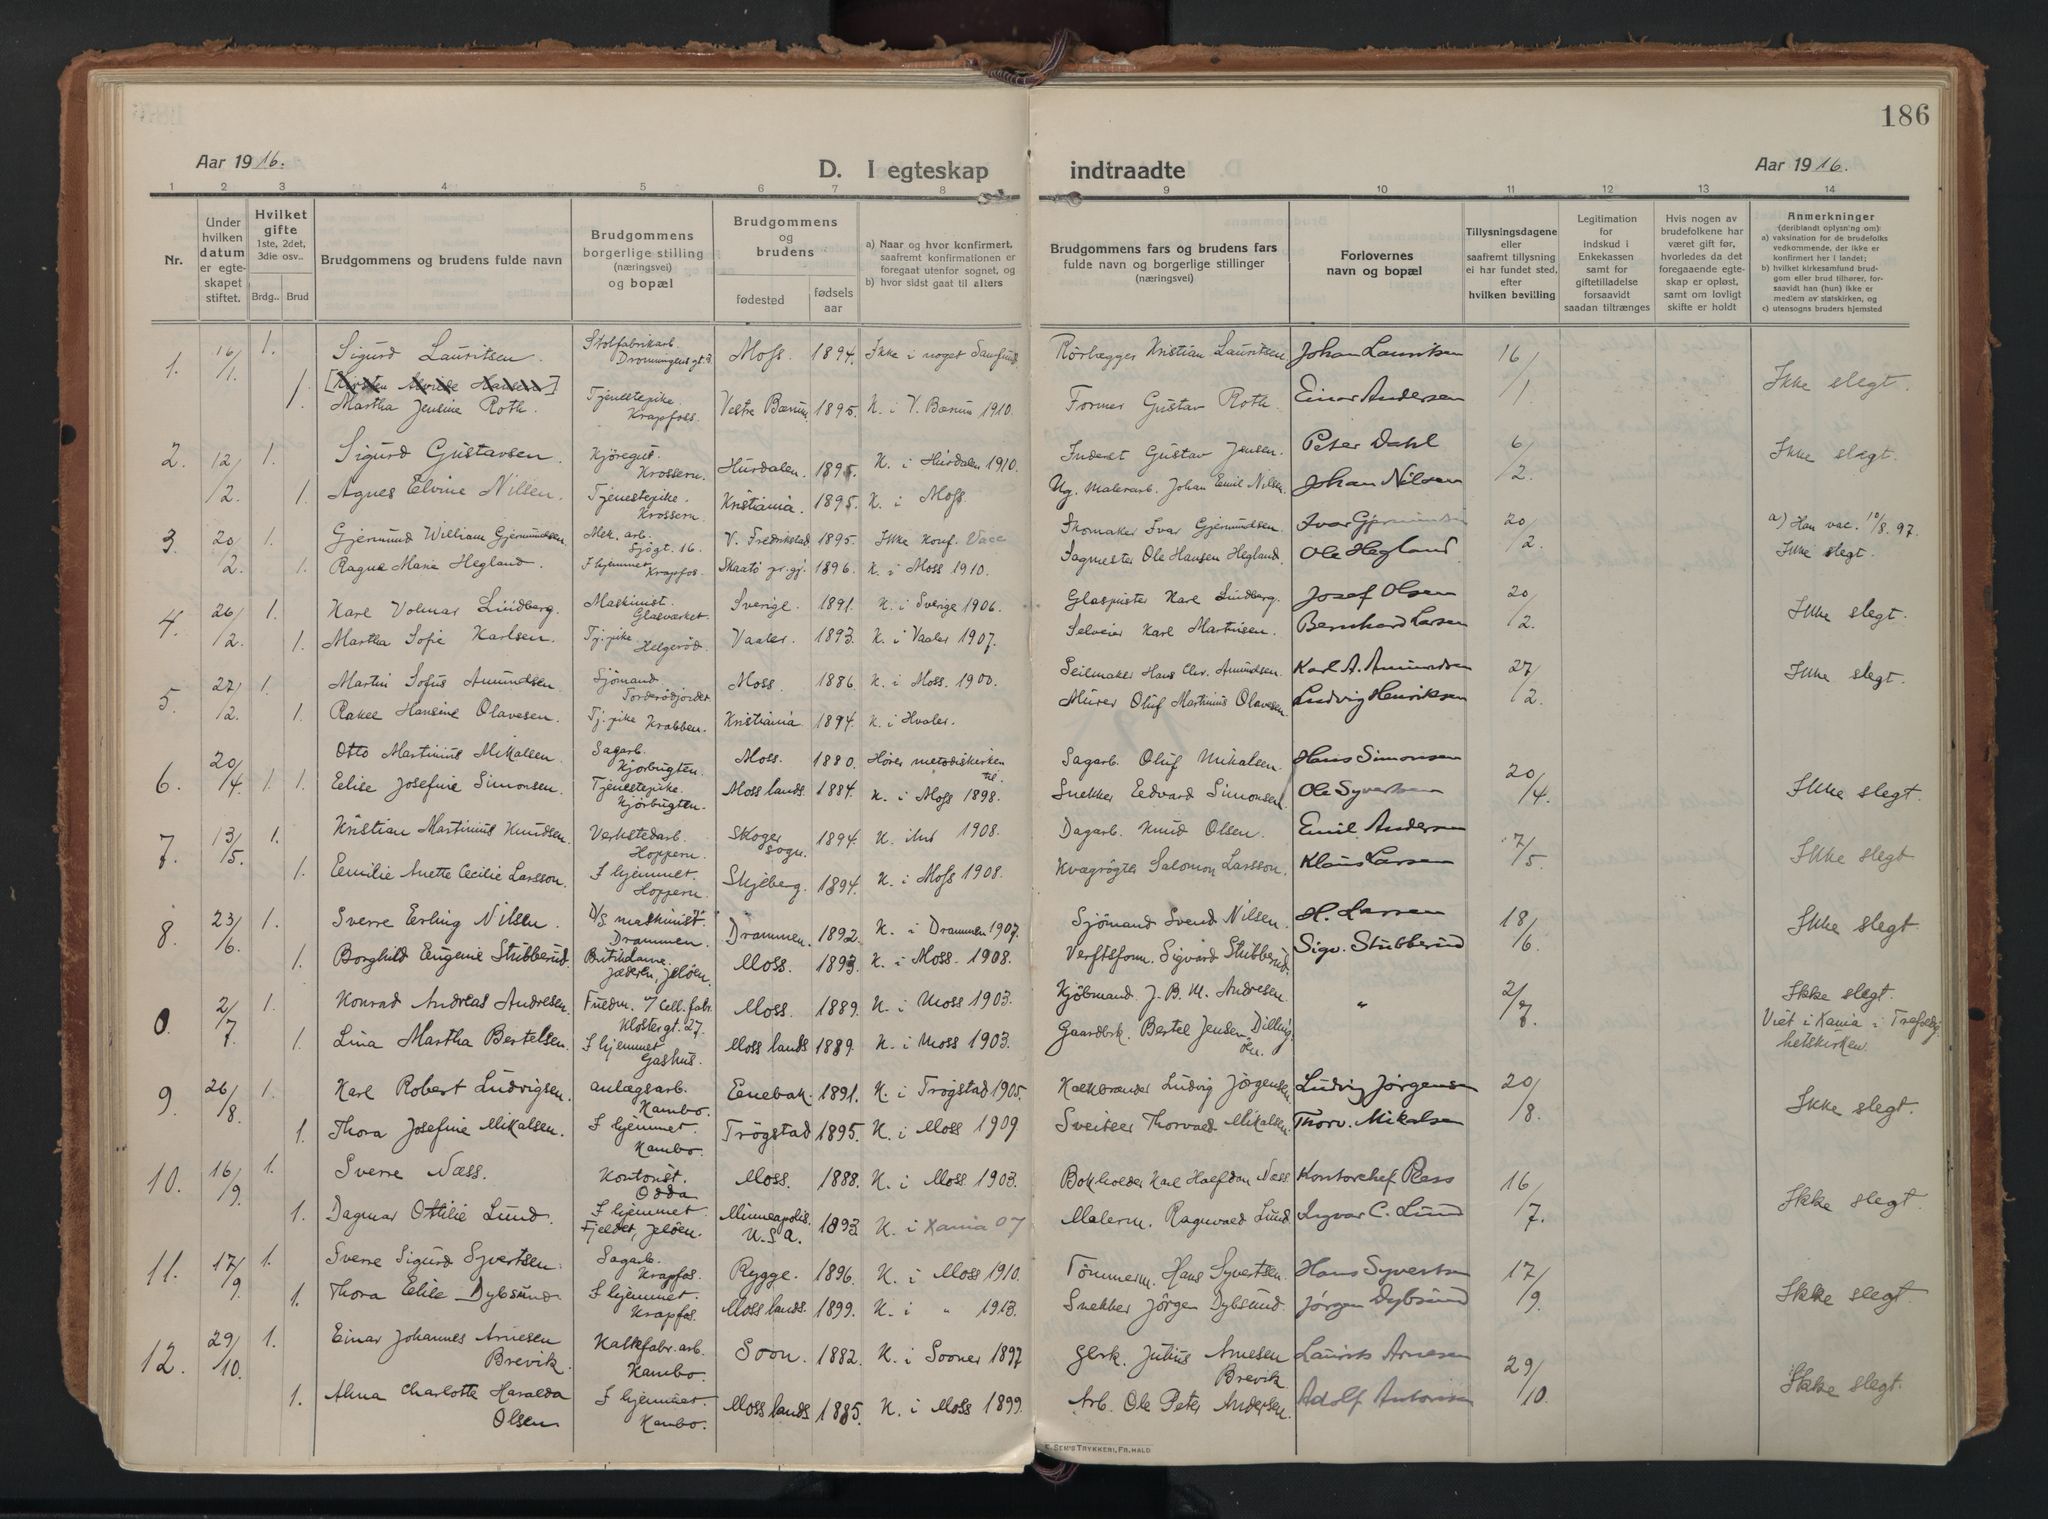 186
Aar 1916.
D. I egteskap indtraadte
Aar 1916.
1 2 3 4 5 6 7 8 9 10 11 12 13 14
Nr.
Under hvilken datum er egteskapet stiftet.
Hvilket gifte 1ste, 2det, 3die osv..
Brdg.. Brud
Brudgommens og brudens fulde navn
Brudgommens borgerlige stilling (næringsvei) og bopæl
Brudgommens og brudens
fødested
fødsels aar
a) Naar og hvor konfirmert, saafremt konfirmationen er foregaat utenfor sognet, og
b) hvor sidst gaat til alters
Brudgommens fars og brudens fars fulde navn og borgerlige stillinger (næringsvei)
Forlovernes navn og bopæl
Tillysningsdagene eller saafremt tillysning ei har fundet sted, efter hvilken bevilling
Legitimation for Indskud i Enkekassen samt for giftetilladelse forsaavidt saadan tiltrænges
Hvis nogen av brudefolkene har været gift før, hvorledes da det foregaaende egteskap er opløst, samt om lovligt skifte er holdt
Anmerkninger (deriblandt oplysning om):
a) vaksination for de brudefolks vedkommende, der ikke er konfirmert her i landet;
b) hvilket kirkesamfund brudgom eller brud tilhører, forsaavidt han (hun) ikke er medlem av statskirken, og
c) utensogns bruders hjemsted
1. 16/1. 1. Sigurd Lauritsen. Stolfabrikarb. Dronningensgt. 3 Moss. 1894. Ikke i noget Samfund Rörlægger Kristian Lauritsen Johan Lauritsen 16/1 Ikke slegt.
[Kirsten Alvilde Hansen]
1. Martha Jensine Roth. Tjenestepike. Krapfoss. Vestre Bærum 1895. K. i V. Bærum 1910. Former Gustav Roth. Einar Andersen
2. 12/2. 1. Sigurd Gustavsen. Kjøregut. Krossern. Hurdalen. 1895. K. i Hurdalen 1910. Inderst Gustav Jensen. Peter Dahl 6/2. Ikke slegt.
1. Agnes Elvine Nilsen. Tjenestepike. Krossern. Kristiania. 1895. K. i Moss. Ug. Malerarb. Johan Emil Nilsen. Johan Nilsen
3. 20/2. 1. Gjermund William Gjermundsen. Mek. arb. Sjøgt. 16. V. Fredrikstad 1895. Ikke konf. Vacc Skomaker Ivar Gjermundsen. Ivar Gjermundsen 20/2. a) Han vac. 10/8. 97. Ikke slegt.
1. Ragna Marie Hegland. I hjemmet Krapfos. Skaatö pr.gj. 1896. K. i Moss 1910. Fagmester Ole Hansen Hegland. Ole Hegland
4. 26/2. 1. Karl Volmar Lindberg. Maskinist. Glasværket. Sverige. 1891. K. i Sverige 1906. Glaspuster Karl Lindberg. Josef Olsen 20/2. Ikke slegt.
1. Martha Sofie Karlsen. Tj.pike Helgerød. Vaaler. 1893. K. i Vaaler 1907. Selveier Karl Martinsen. Bernhard Larsen
5. 27/2. 1. Martin Sofus Amundsen. Sjömand. Torderødjordet Moss. 1886. K. i Moss. 1900. Seilmaker Hans Chr. Amundsen. Karl A. Amundsen 27/2. Ikke slegt.
1. Rakel Hansine Olavesen. Tj.pike Krabben. Kristiania 1894. K. i Hvaler. Murer Oluf Martinius Olavesen Ludvig Henriksen
6. 20/4. 1. Otto Martinius Mikalsen. Sagarb. Kjørbugten. Moss. 1880. Hører metodistkirken til. Sagarb. Oluf Mikalsen. Hans Simonsen 20/4. Ikke slegt.
1. Elise Josefine Simonsen. Tjenestepike. Kjørbugten. Moss lands. 1884. K. i Moss 1898. Snekker Edvard Simonsen. Ole Syvertsen
7. 13/5. 1. Kristian Martinius Knudsen. Verkstedarb. Hoppern. Skoger sogn. 1894. K. 1908. Dagarb. Knud Olsen. Emil Andersen 7/5 Ikke slegt
1. Emilie Anette Cecilie Larsson. I hjemmet. Hoppern. Skjeberg. 1894. K. i Moss 1908. Kvægrøgter Salomon Larsson. Klaus Larsen
8. 23/6. 1. Sverre Erling Nilsen. D/S maskinist. Drammen. Drammen. 1892. K. i Drammen 1907. Sjömand Svend Nilsen. H. Larsen 18/6. Ikke slegt
1. Borghild Eugenie Stubberud. Butikdame. Jæderen, Jeløen. Moss. 1893. K. i Moss. 1908. Verftsform. Sigvard Stubberud. Sigv. Stubberud
0. 2/7. 1. Konrad Andreas Andresen. Fuldm. v/ Cell. fabr. Klostergt. 27. Moss. 1889. K. i Moss 1903. Kjöbmand. J. B. M. Andresen. " 2/7. Ikke slegt.
1. Lina Martha Bertelsen. I hjemmet Gashus. Moss lands 1889. K. i Moss 1903. Gaardbr. Bertel Jensen Dilling Viet i Kania i Trefoldighetskirken.
9. 26/8. 1. Karl Robert Ludvigsen. anlægsarb. Kambo. Enebak. 1891. K. i Trøgstad 1905. Kalkbrænder Ludvig Jørgensen. Ludvig Jørgensen 20/8. Ikke slegt.
1. Thora Josefine Mikalsen. I hjemmet. Kambo. Trøgstad 1895. K. i Moss 1909 Sveitser Thorvald Mikalsen. Thorv. Mikalsen
10. 16/9. 1. Sverre Næss. Kontorist. Odda Moss. 1888. K. i Moss 1903. Bokholder Karl Halfdan Næss. Kontorchef Ræss 16/7. Ikke slegt.
1. Dagmar Ottilie Lund. I hjemmet Fjeldet, Jeløen. Minneapolis. U.S.A. 1893. K. i Kania 07 Malerm. Ragnvald Lund. Ingvar C. Lund
11. 17/9. 1. Sverre Sigurd Syvertsen. Sagarb. Krapfos. Rygge. 1896. K. i Moss 1910. Tömmerm. Hans Syvertsen. Hans Syvertsen 17/9. Ikke slegt.
1. Thora Elise Dybsund I hjemmet Krapfos. Moss lands. 1899. K. i " 1913. Snekker Jörgen Dybsund. Jörgen Dybsund
12. 29/10. 1. Einar Johannes Arnesen Brevik. Kalkfabr. arb. Kambo. Soon. 1882. K. i Sooner 1897 Julius Arnesen Brevik. Laurits Arnesen 29/10. Ikke slegt.
1. Alma Charlotte Haralda Olsen I hjemmet. Kambo. Moss lands 1885. K. i Moss 1899. Arb. Ole Peter Andersen. Adolf Antonsen
E. SEM'S TRYKKERI, FR.HALD